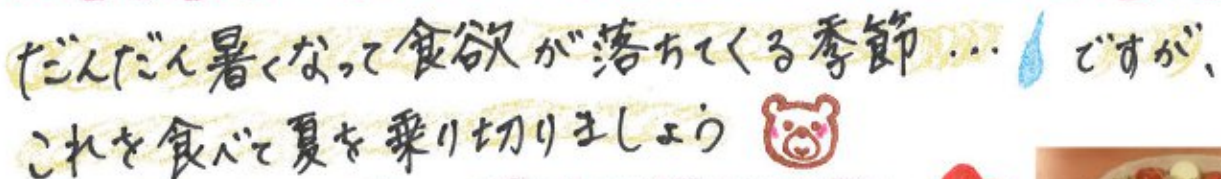 だんだん暑くなって食欲が落ちてくる季節…ですが、
これを食べて夏を乗り切りましょう